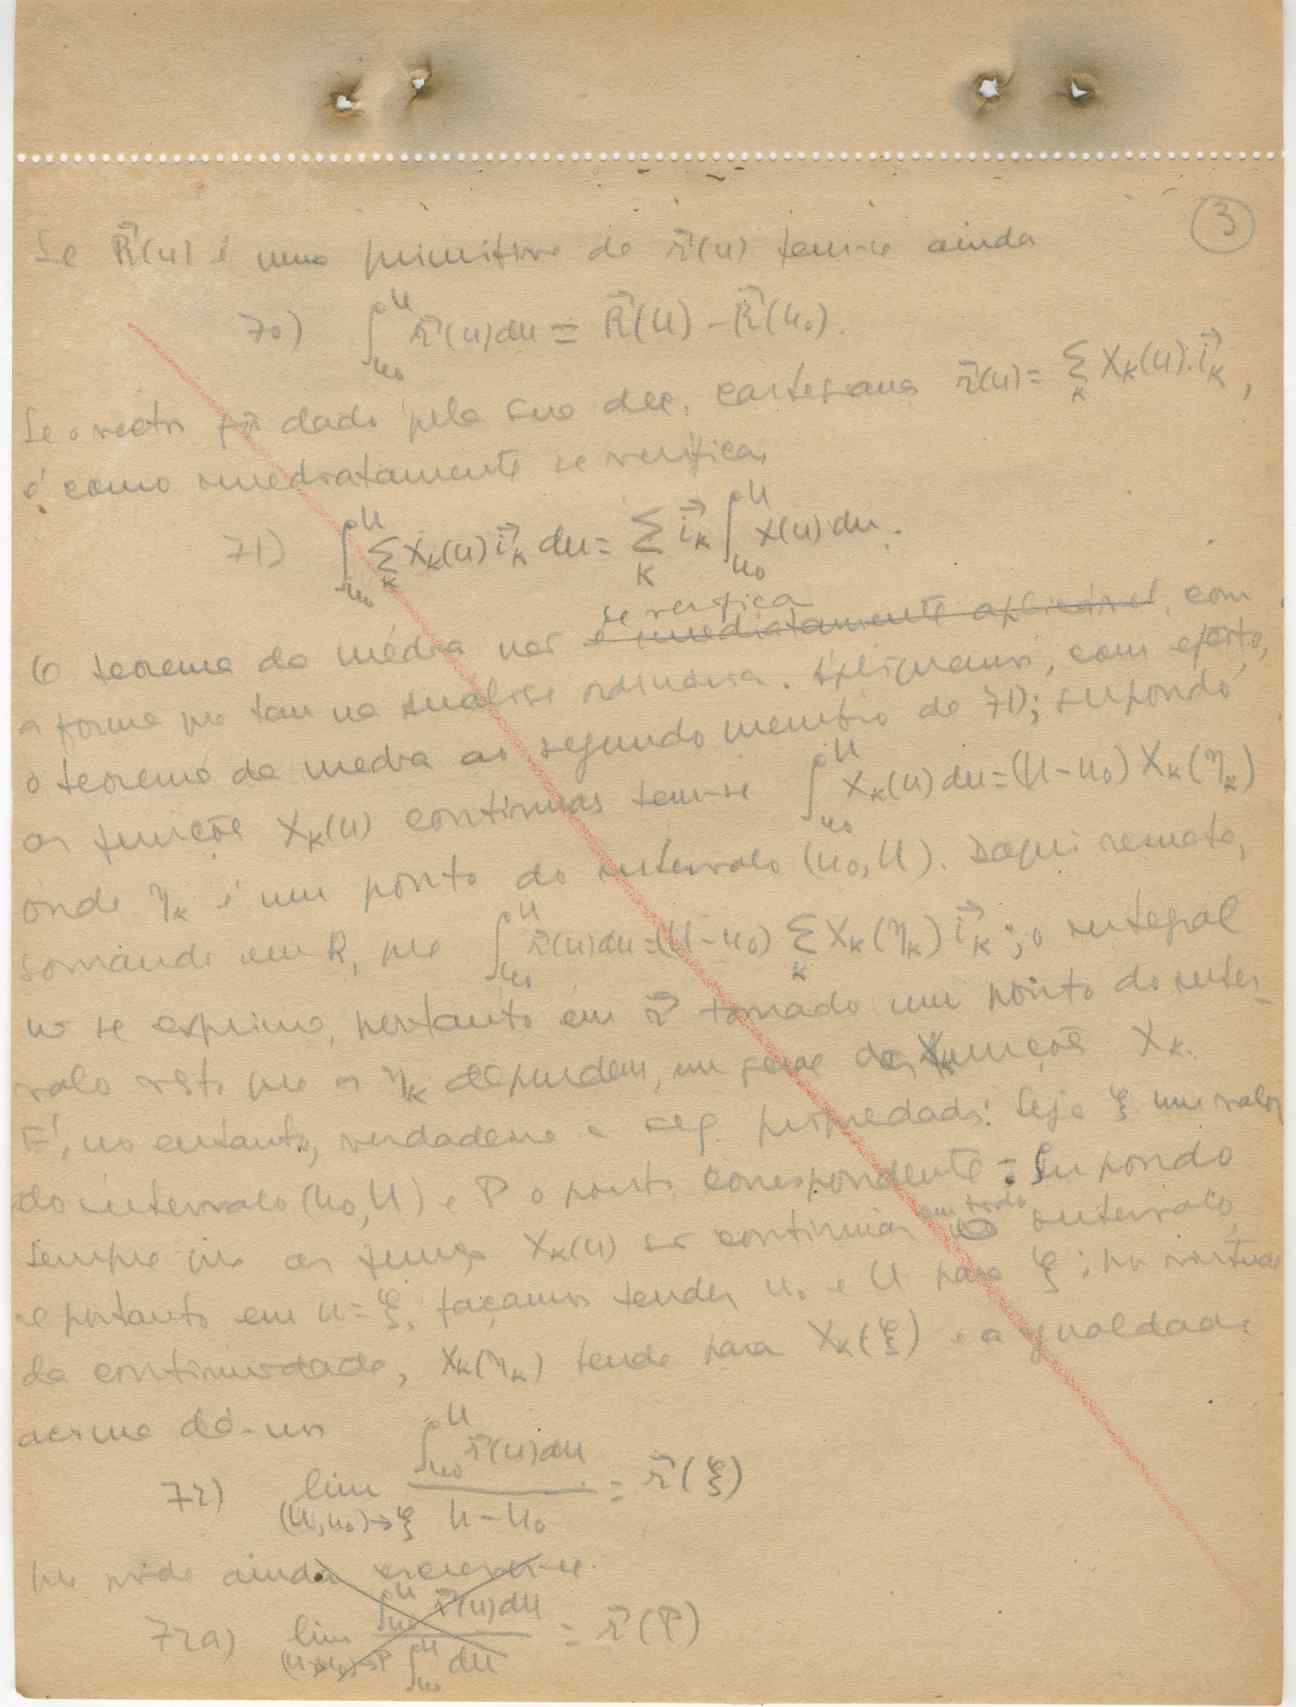 3
Se R⃗(u) é uma primitiva de r⃗(u) tem-se ainda
70) ∫_{u₀}^{U} r⃗(u)du = R⃗(U) - R⃗(u₀).
Se o vector fôr dado pela sua dec. cartesiana r⃗(u) = Σ_k X_k(u).i⃗_k,
é como imediatamente se verifica,
71) ∫_{u₀}^{U} Σ_k X_k(u) i⃗_k du = Σ_k i⃗_k ∫_{u₀}^{U} X(u) du.
se verifica
O teorema da média não é imediatamente aplicável, com
a forma que tem na análise ordinária. Apliquemos, com efeito,
o teorema da média ao segundo membro de 71); supondo
as funções X_k(u) continuas tem-se ∫_{u₀}^{U} X_k(u) du = (U-u₀) X_k(η_k)
onde η_k é um ponto do intervalo (u₀,U). Daqui resulta,
somando em k, que ∫_{u₀}^{U} r⃗(u)du = (U-u₀) Σ_k X_k(η_k) i⃗_k; o integral
não se exprime, portanto em r⃗ tomado num ponto do inter-
valo visto que os η_k dependem, em geral das funções X_k.
É, no entanto, verdadeira a seg. propriedade: Seja ξ um valor
do intervalo (u₀,U) e P o ponto correspondente. Supondo
sempre que as funções X_k(u) são continuas em todo o intervalo,
e portanto em u=ξ, façamos tender u₀ e U para ξ; por virtude
da continuidade, X_k(η_k) tende para X_k(ξ) e a igualdade
acima dá-nos
72) lim_{(U,u₀)→ξ} ∫_{u₀}^{U} r⃗(u)du / U-u₀ = r⃗(ξ)
que pode ainda escrever-se.
72a) lim_{(U,u₀)→P} ∫_{u₀}^{U} r⃗(u)du / ∫_{u₀}^{U} du = r⃗(P)